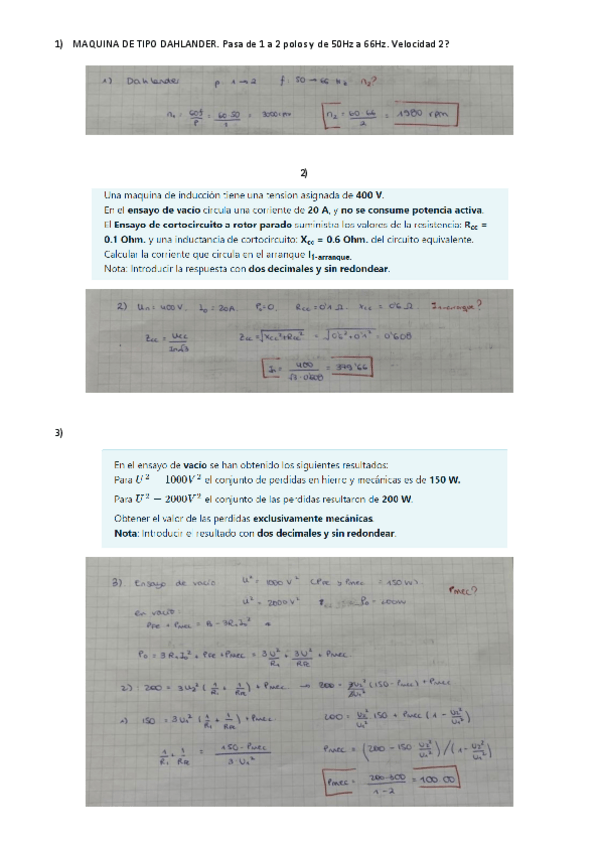 1) MAQUINA DE TIPO DAHLANDER. Pasa de 1 a 2 polos y de 50Hz a 66Hz. Velocidad 2?
1) Dahlander p 1→2 f: 50→66 Hz n₂?
n₁ = 60f/P = 60·50/1 = 3000 rpm n₂ = 60·66/2 = 1980 rpm
2)
Una maquina de inducción tiene una tension asignada de 400 V.
En el ensayo de vacío circula una corriente de 20 A, y no se consume potencia activa.
El Ensayo de cortocircuito a rotor parado suministra los valores de la resistencia: Rcc =
0.1 Ohm. y una inductancia de cortocircuito: Xcc = 0.6 Ohm. del circuito equivalente.
Calcular la corriente que circula en el arranque I1-arranque.
Nota: Introducir la respuesta con dos decimales y sin redondear.
2) Un = 400V, I₀ = 20A, P₀=0, Rcc = 0'1 Ω, Xcc = 0'6 Ω I1-arranque?
Zcc = Ucc/In√3 Zcc = √Xcc²+Rcc² = √0'6²+0'1² = 0'608
In = 400/√3·0'608 = 379'66
3)
En el ensayo de vacío se han obtenido los siguientes resultados:
Para U² = 1000V² el conjunto de perdidas en hierro y mecánicas es de 150 W.
Para U² = 2000V² el conjunto de las perdidas resultaron de 200 W.
Obtener el valor de las perdidas exclusivamente mecánicas.
Nota: Introducir el resultado con dos decimales y sin redondear.
3) Ensayo de vacío U² = 1000 V² (PFE + PMEC = 150 W). PMEC?
U² = 2000 V² P₀ = 200W
en vacío:
PFE + PMEC = P₀ - 3R₁I₀²
P₀ = 3R₁I₀² + PFE + PMEC = 3U²/R₁ + 3U²/RFE + PMEC
2): 200 = 3U₂² (1/R₁ + 1/RFE) + PMEC → 200 = 3U₂²/3U₁² (150 - PMEC) + PMEC
1) 150 = 3U₁² (1/R₁ + 1/RFE) + PMEC. 200 = U₂²/U₁² 150 + PMEC (1 - U₂²/U₁²)
1/R₁ + 1/RFE = 150 - PMEC/3·U₁² PMEC = (200 - 150 U₂²/U₁²)/(1 - U₂²/U₁²)
PMEC = 200-300/1-2 = 100'00